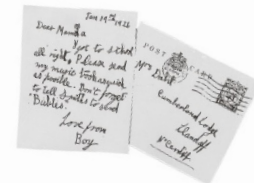 Jan 19th 1926
Dear Mama
I got to school
all right. Please send
my magic book as quick
as posible. Don't forget
to tell to send
"Bubles".
Love from
Boy
POST CARD
Mrs Dahl
Cumberland Lodge
Llandaff
Nr Cardiff